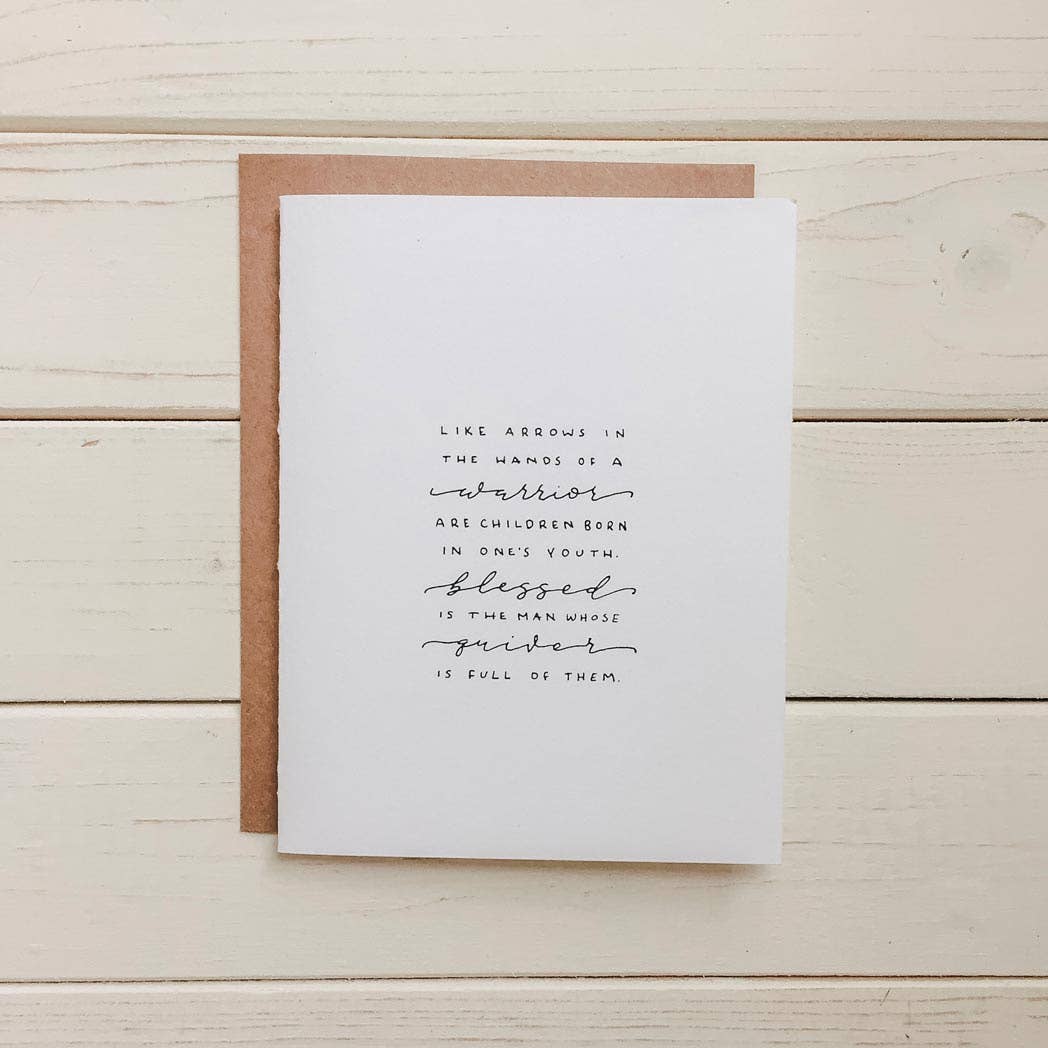 LIKE ARROWS IN
THE HANDS OF A
warrior
ARE CHILDREN BORN
IN ONE'S YOUTH.
blessed
IS THE MAN WHOSE
quiver
IS FULL OF THEM.